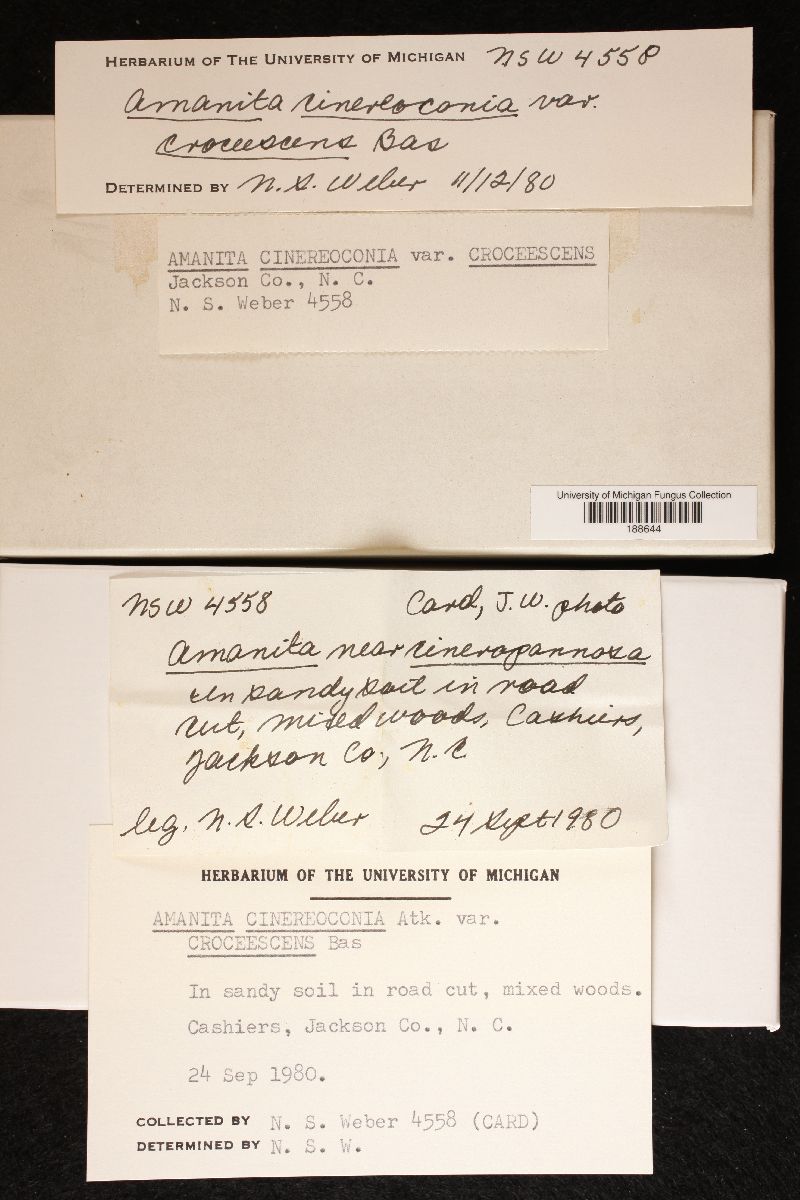 HERBARIUM OF THE UNIVERSITY OF MICHIGAN NSW 4558
Amanita cinereoconia var.
croceescens Bas
DETERMINED BY N. S. Weber 11/12/80
AMANITA CINEREOCONIA var. CROCEESCENS
Jackson Co., N. C.
N. S. Weber 4558
University of Michigan Fungus Collection
188644
NSW 4558 Card, J.W. photo
Amanita near cineropannosa
in sandy soil in road
cut, mixed woods, Cashiers,
Jackson Co., N. C
leg. N. S. Weber 24 Sept 1980
HERBARIUM OF THE UNIVERSITY OF MICHIGAN
AMANITA CINEREOCONIA Atk. var.
CROCEESCENS Bas
In sandy soil in road cut, mixed woods.
Cashiers, Jackson Co., N. C.
24 Sep 1980.
COLLECTED BY N. S. Weber 4558 (CARD)
DETERMINED BY N. S. W.